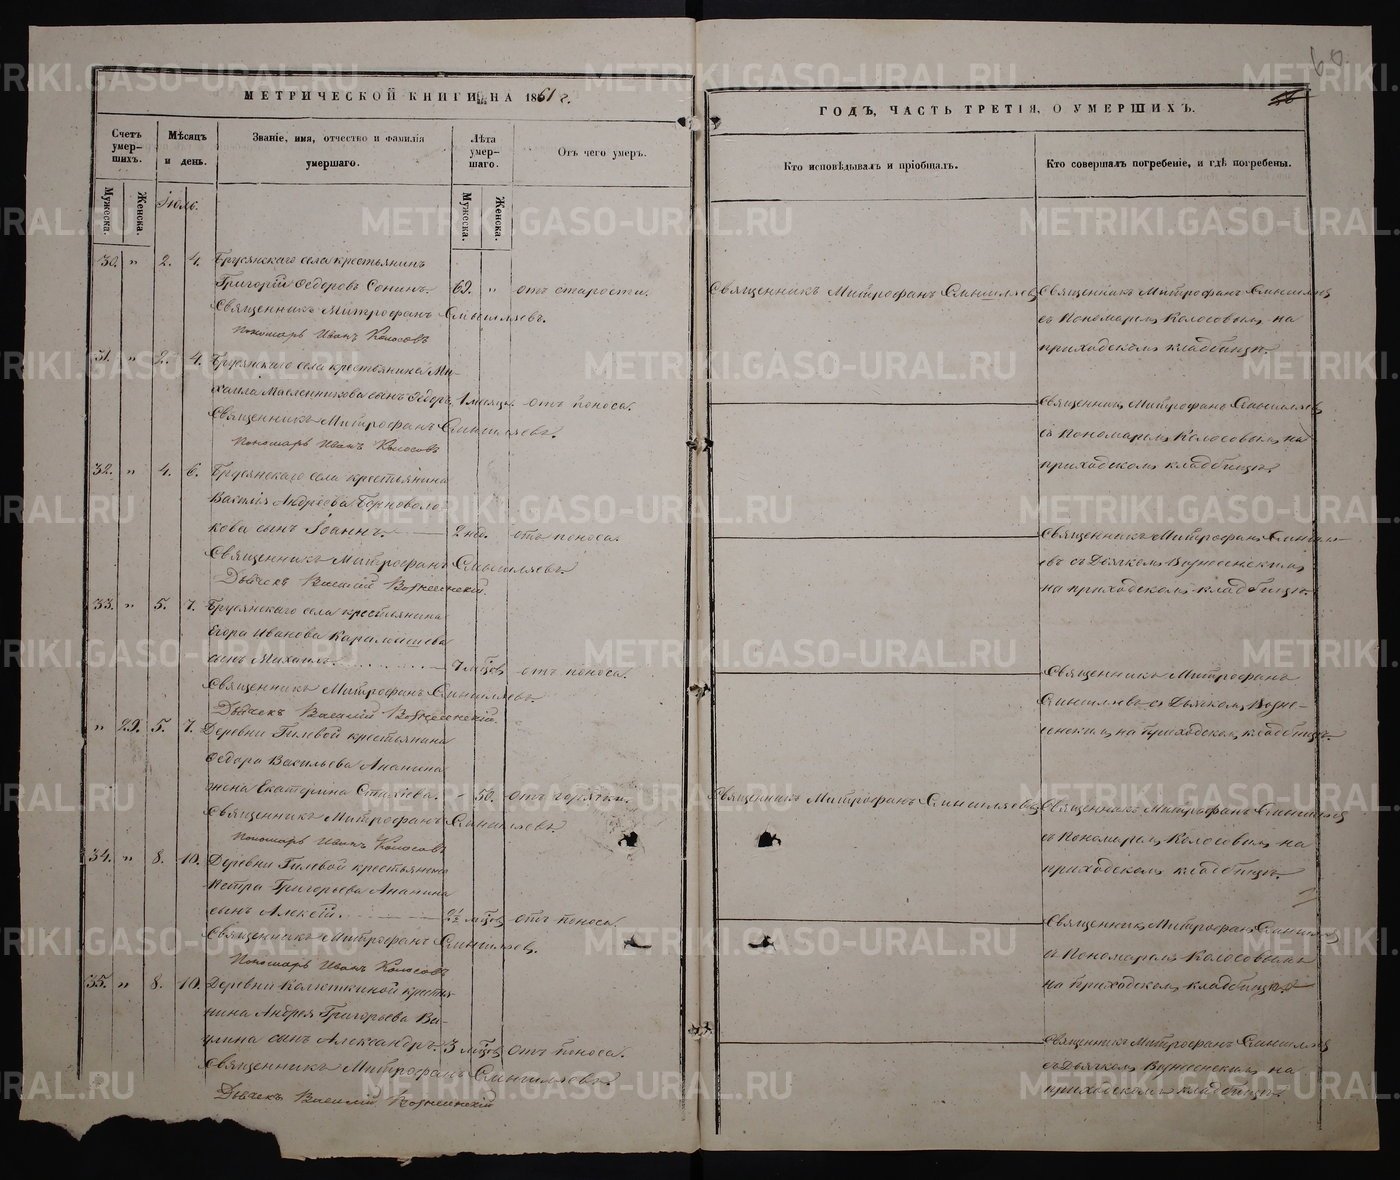 60.
МЕТРИЧЕСКОЙ КНИГИ НА 1861 г.
ГОДЪ, ЧАСТЬ ТРЕТІЯ, О УМЕРШИХЪ.
Счетъ умер-шихъ.
Мѣсяцъ и день.
Званіе, имя, отчество и фамилія умершаго.
Лѣта умер-шаго.
Отъ чего умеръ.
Кто исповѣдывалъ и пріобщалъ.
Кто совершалъ погребеніе, и гдѣ погребены.
Мужеска.
Женска.
Іюль.
Мужеска.
Женска.
30. " 2. 4. Брусянскаго села крестьянинъ
Григорій Ѳедоровъ Сонинъ. 69. " отъ старости.
Священникъ Митрофанъ Синцилевъ.
Пономарь Иванъ Колосовъ
Священникъ Митрофанъ
Священникъ Митрофанъ
съ Пономаремъ Колосовымъ, на
приходскомъ кладбищѣ.
31. " 2. 4. Брусянскаго села крестьянина Ми-
хаила Масленникова сынъ Ѳедоръ. 1 месяцъ. отъ поноса.
Священникъ Митрофанъ
Пономарь Иванъ Колосовъ
Священникъ Митрофанъ
съ Пономаремъ Колосовымъ, на
приходскомъ кладбищѣ.
32. " 4. 6. Брусянскаго села крестьянина
Василія Андреева Черноволо-
кова сынъ Іоаннъ. 2 нед. отъ поноса.
Священникъ Митрофанъ
Дьячекъ Василій Вознесенскій.
Священникъ Митрофанъ
съ Дьячкомъ Вознесенскимъ,
на приходскомъ кладбищѣ.
33. " 5. 7. Брусянскаго села крестьянина
Егора Иванова
сынъ Михаилъ. 7 мѣсцв отъ поноса.
Священникъ Митрофанъ
Дьячекъ Василій Вознесенскій.
Священникъ Митрофанъ
съ Дьячкомъ Возне-
сенскимъ, на приходскомъ кладбищѣ.
" 29. 5. 7. Деревни Гилевой крестьянина
Ѳедора Васильева Ананьина
жена Екатерина Стахіева. 50. отъ горячки.
Священникъ Митрофанъ
Пономарь Иванъ Колосовъ
Священникъ Митрофанъ
Священникъ Митрофанъ
съ Пономаремъ Колосовымъ, на
приходскомъ кладбищѣ.
34. " 8. 10. Деревни Гилевой крестьянина
Петра Григорьева Ананьина
сынъ Алексѣй. 2½ мѣсцв отъ поноса
Священникъ Митрофанъ
Пономарь Иванъ Колосовъ
Священникъ Митрофанъ
съ Пономаремъ Колосовымъ
на приходскомъ кладбищѣ.
35. " 8. 10. Деревни Колюткиной крестья-
нина Андрея Григорьева Ва-
сынъ Александръ. 3 мѣсцв отъ поноса.
Священникъ Митрофанъ
Дьячекъ Василій Вознесенскій
Священникъ Митрофанъ
съ Дьячкомъ Вознесенскимъ, на
приходскомъ кладбищѣ.
METRIKI.GASO-URAL.RU